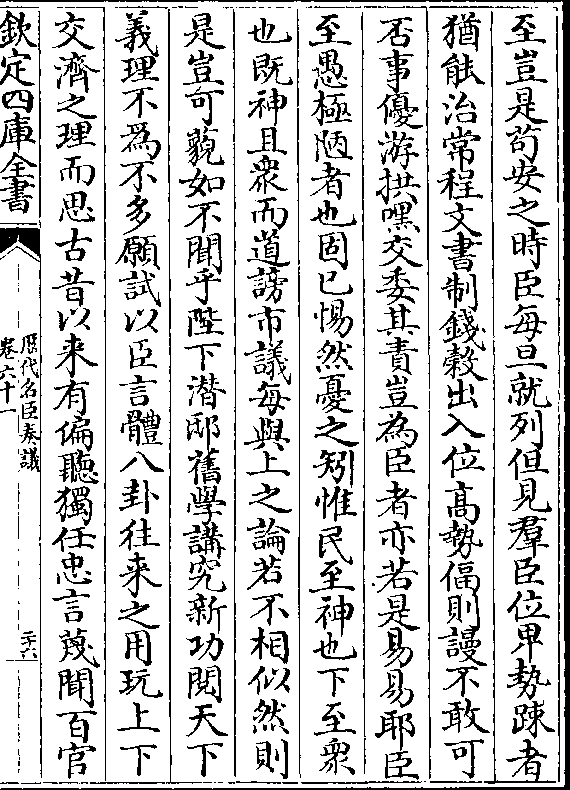 至豈是苟安之時臣每旦就列但見羣臣位卑勢踈者
猶能治常程文書制錢榖出入位髙勢偪則謾不敢可
否事優游拱嘿交委其責豈為臣者亦若是易易耶臣
至愚極陋者也固已惕然憂之矧惟民至神也下至衆
也既神且衆而道謗市議每與上之論若不相似然則
是豈可藐如不聞乎陛下潛邸舊學講究新功閱天下
義理不爲不多願試以臣言體八卦往来之用玩上下
交濟之理而思古昔以来有偏聽獨任忠言蔑聞百官
欽定四庫全書
歴代名臣奏議
卷六十一
三十六